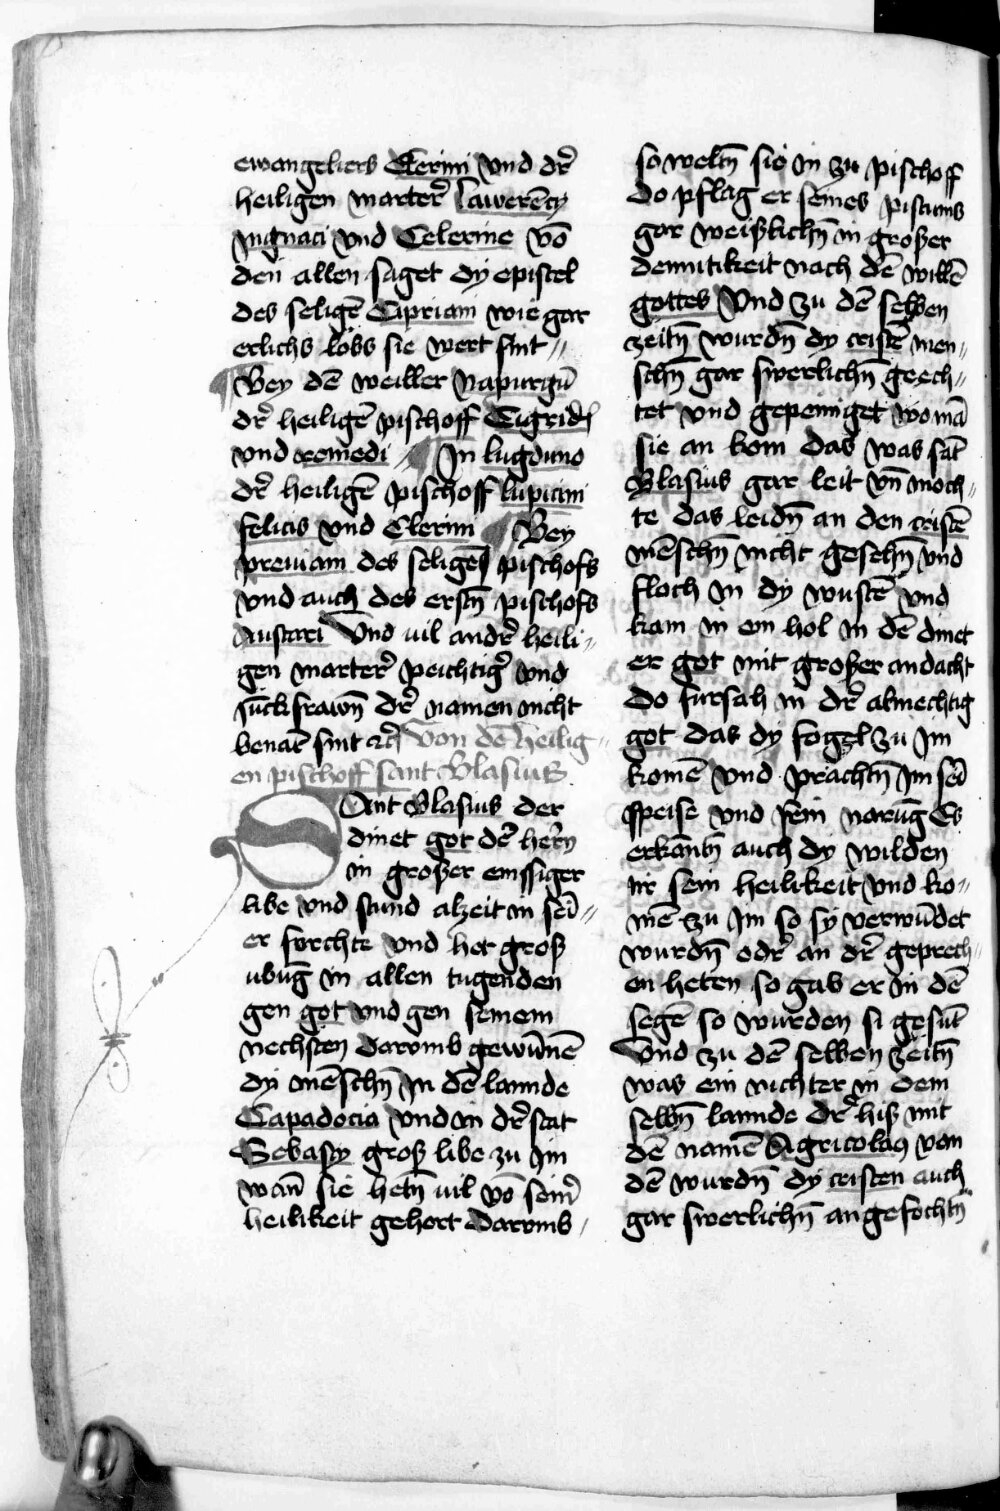 ewangeliers Clerini vnd dr̄
heiligen marter̄ Lawerēcy
yngnaci vnd Celerine vō
den allen saget dy epistel
des seligē Cipriani wie gar
erlichs lobs sie wert sint
Bey dē weiller Napurgū
dr̄ heiligē pischoff Tigridꝭ
vnd remedi In lugduno
dr̄ heiligē pischoff lupicini
felicis vnd Clerini Bey
previam des seligē pischofs
vnd auch des erstn̄ pischofs
Austari Vnd uil andr̄ heili-
gen marter̄ peichtiḡ vnd
Junckfrawn̄ dr̄ namen nicht
benāt sint ꝛc̄ Von dē heilig-
en pischoff sant Blasius
Sant Blasius der
dinet got dē her̄n
in großer emssiger
libe vnd stund alzeit in sei-
er forchte vnd het groß
ubūg in allen tugenden
gen got vnd gen seinem
nechsten darvmb gewūnē
dy mēschn̄ in dē lannde
Capadocia vnd in dr̄ stat
Sebasty groß libe zu Im
wan̄ sie hetn̄ uil vō seinr̄
heilikeit gehort darvmb
so weltn̄ sie in zu pischoff
do pflag er seines pistums
gar weißlichn̄ in großer
demutikeit nach dē willē
gottes Vnd zu dē selben
zeitn̄ wurdn̄ dy cristē men-
schn̄ gar swerlichn̄ geech-
tet vnd gepeiniget wo mā
sie an kom das was sāt
Blasius gar leit vn̄ moch-
te das leidn̄ an den cristē
mēschn̄ nicht gesehn̄ vnd
floch in dy wustē vnd
kam in ein hol in dē dinet
er got mit großer andacht
do fursah in dr̄ almechtig
got das dy fogel zu Im
komē vnd prachtn̄ Im sei
speise vnd sein narūg Es
erkantn̄ auch dy wilden
tir sein heilikeit vnd ko-
mē zu Im so sy verwūdet
wurdn̄ odr̄ an dr̄ geprech-
en heten so gab er in dē
segē so wurden si gesūt
Vnd zu dē selben zeitn̄
was ein richter in dem
selbn̄ lannde dr̄ hiß mit
dē namē Agricolaꝰ von
dē wurdn̄ dy cristen auch
gar swerlichn̄ angefochtn̄